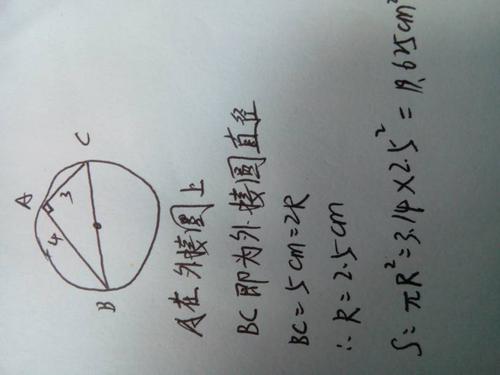 A
3
C
4
B
A在外接圆上
BC即为外接圆直径
BC=5cm=2R
∴R=2.5cm
S=πR²=3.14×2.5²=19.625cm²